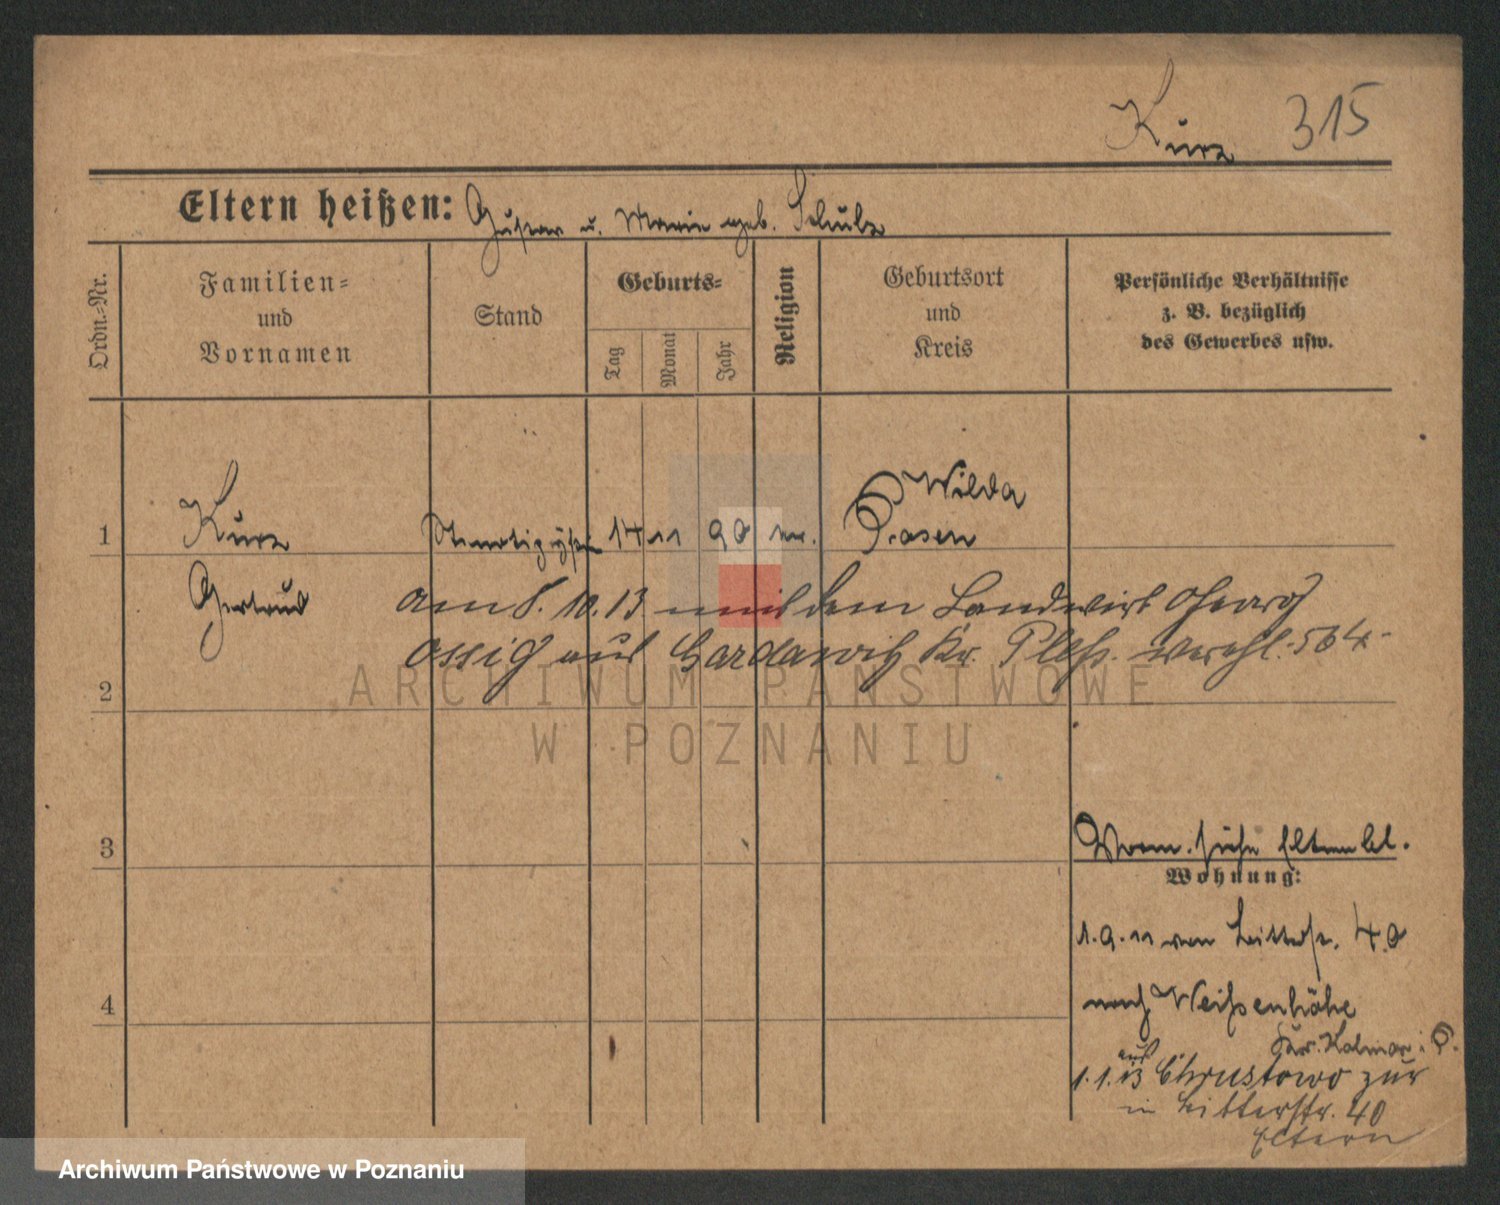 Kurz 315
Eltern heißen: Gustav u. Marie geb. Schulz
Ordn.-Nr.
Familien-
und
Vornamen
Stand
Geburts-
Tag
Monat
Jahr
Religion
Geburtsort
und
Kreis
Persönliche Verhältnisse
z. B. bezüglich
des Gewerbes usw.
Wilda
1 Kurz 14 11 90 ev. Posen
Gertrud am 8. 10. 13 mit dem Landwirt Georg
Ossig aus Gardawitz Kr. Pleß. verehl. 564
2
ARCHIWUM PAŃSTWOWE
W POZNANIU
3
Vorm. siehe Elternbl.
Wohnung:
1. 9. 11 von Bitterstr. 40
4
nach Weißenhöhe
Kolmar i. P.
1. 1. 13 aus Chrustowo zur
in Bitterstr. 40
Eltern
Archiwum Państwowe w Poznaniu